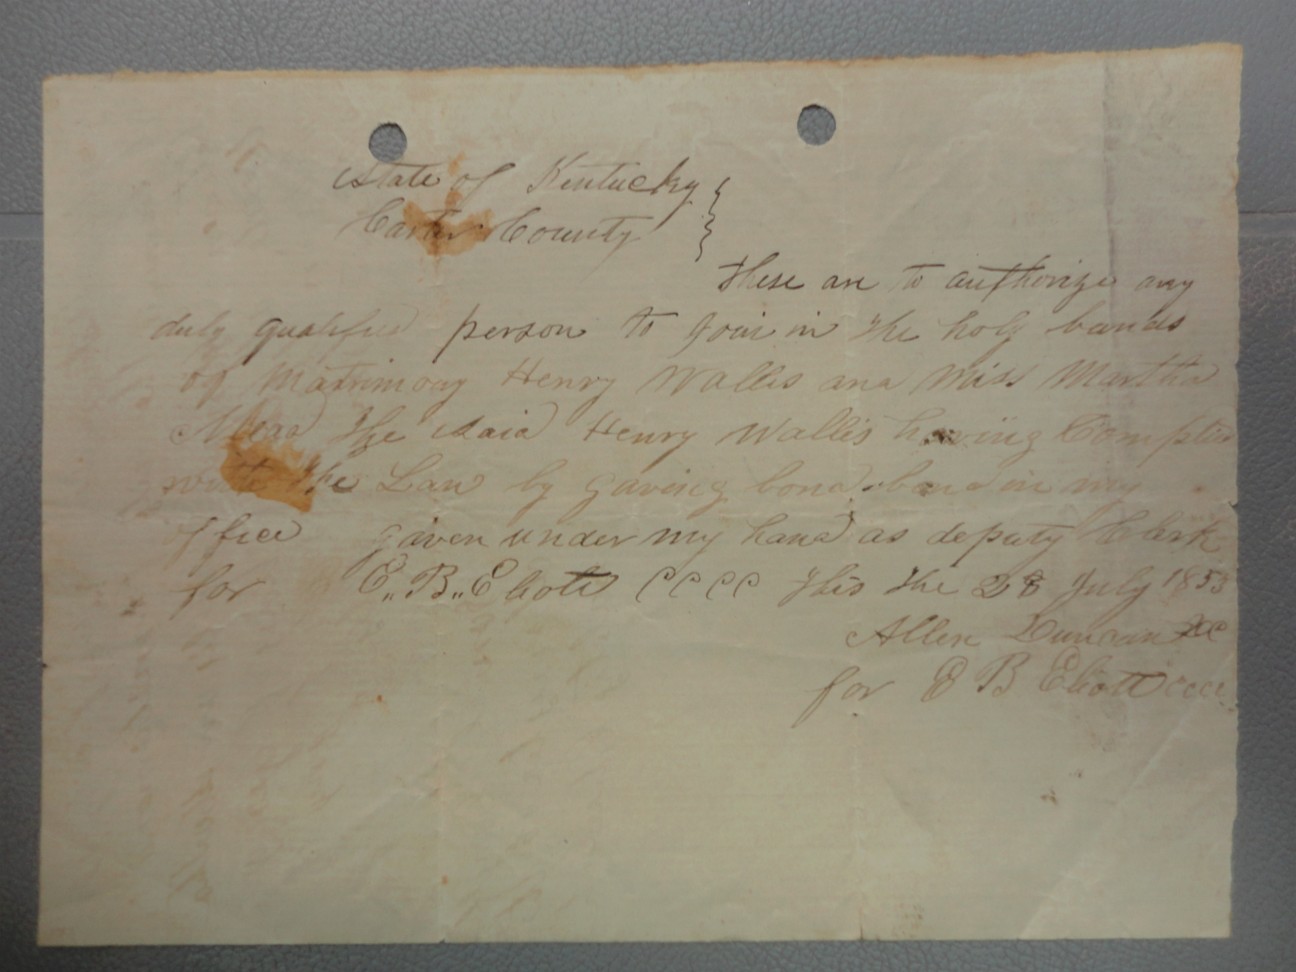 State of Kentucky }
Carter County }
These are to authorize any
duly qualified person to join in the holy bands
of Matrimony Henry Wallis and Miss Martha
Mead the said Henry Wallis having Complied
with the Law by giving bond in my
office given under my hand as deputy Clark
for E.B. Eliott CCCC this the 28 July 1853
Allen Duncan DC
for E B Eliott cccc